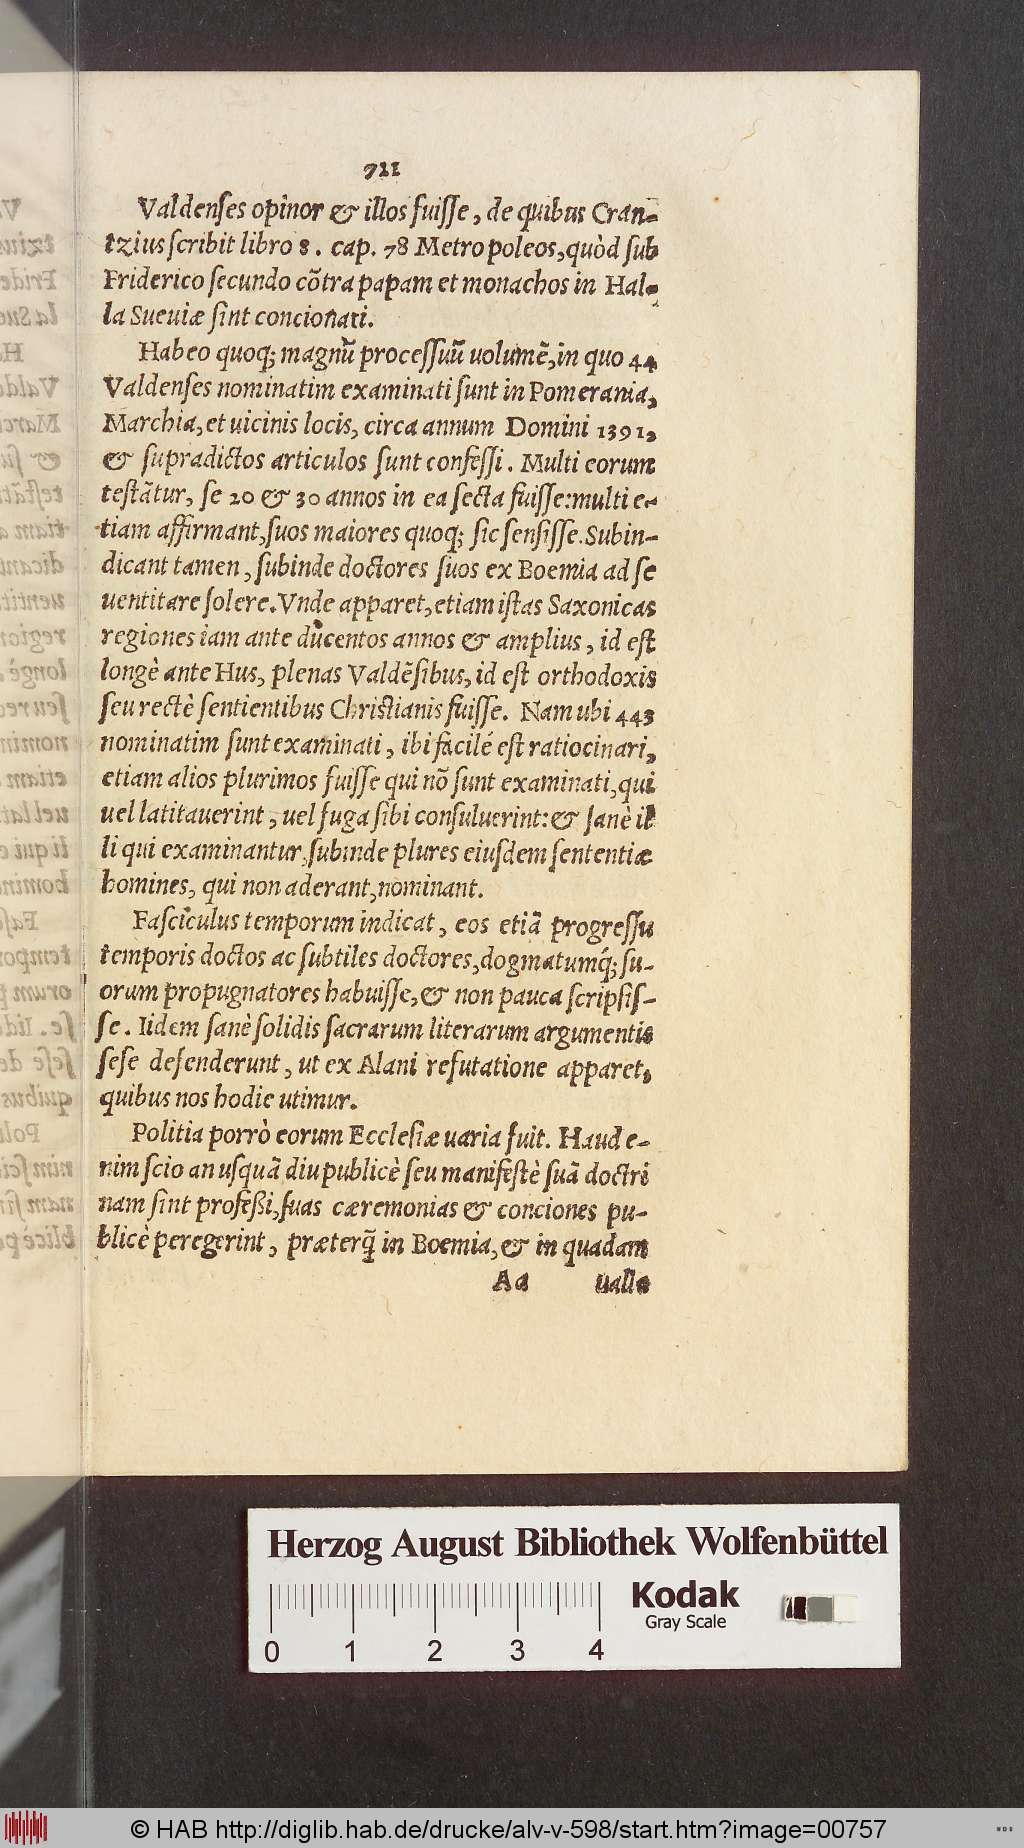 711
Valdenses opinor & illos fuiſſe, de quibus Cran-
tzius ſcribit libro 8. cap. 78 Metropoleos, quòd ſub
Friderico ſecundo cõtra papam et monachos in Hal-
la Sueuiæ ſint concionati.
Habeo quoq; magnũ proceſſuũ uolumẽ, in quo 44
Valdenſes nominatim examinati ſunt in Pomerania,
Marchia, et uicinis locis, circa annum Domini 1391,
& ſupradictos articulos ſunt confeſſi. Multi eorum
teſtãtur, ſe 20 & 30 annos in ea ſecta fuiſſe: multi e-
tiam affirmant, ſuos maiores quoq; ſic ſenſiſſe. Subin-
dicant tamen, ſubinde doctores ſuos ex Boemia ad ſe
uentitare ſolere. Vnde apparet, etiam iſtas Saxonicas
regiones iam ante ducentos annos & amplius, id eſt
longè ante Hus, plenas Valdẽſibus, id eſt orthodoxis
ſeu rectè ſentientibus Chriſtianis fuiſſe. Nam ubi 443
nominatim ſunt examinati, ibi facilé eſt ratiocinari,
etiam alios plurimos fuiſſe qui nõ ſunt examinati, qui
uel latitauerint, uel fuga ſibi conſuluerint: & ſanè il
li qui examinantur, ſubinde plures eiuſdem ſententiæ
homines, qui non aderant, nominant.
Faſciculus temporum indicat, eos etiã progreſſu
temporis doctos ac ſubtiles doctores, dogmatumq́; ſu-
orum propugnatores habuiſſe, & non pauca ſcripſiſ-
ſe. Iidem ſanè ſolidis ſacrarum literarum argumentis
ſeſe defenderunt, ut ex Alani refutatione apparet,
quibus nos hodie utimur.
Politia porrò eorum Eccleſiæ uaria fuit. Haud e-
nim ſcio an uſquã diu publicè ſeu manifeſtè ſuã doctri
nam ſint profeßi, ſuas cæremonias & conciones pu-
blicè peregerint, præterq̃ in Boemia, & in quadam
Aa ualle
Herzog August Bibliothek Wolfenbüttel
Kodak
Gray Scale
0 1 2 3 4
© HAB http://diglib.hab.de/drucke/alv-v-598/start.htm?image=00757